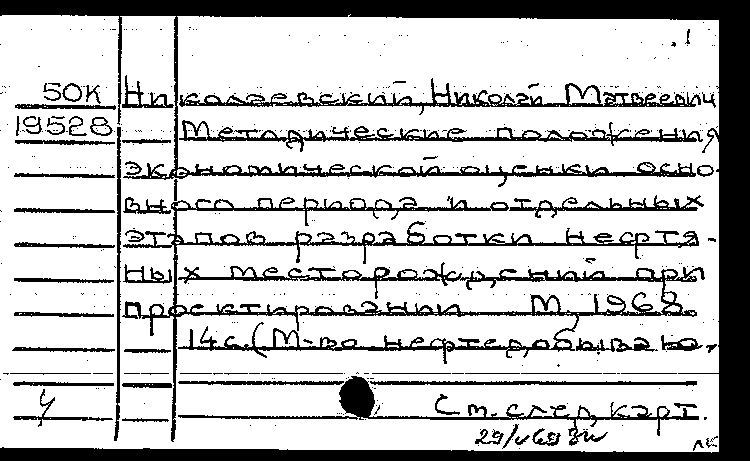 .1
50К Николаевский, Николай Матвеевич
19528 Методические положения
экономической оценки осно-
вного периода и отдельных
этапов разработки нефтя-
ных месторождений при
проектировании М., 1968.
14с. (М-во нефтедобываю-
У См. след. карт.
29/V 69
лк